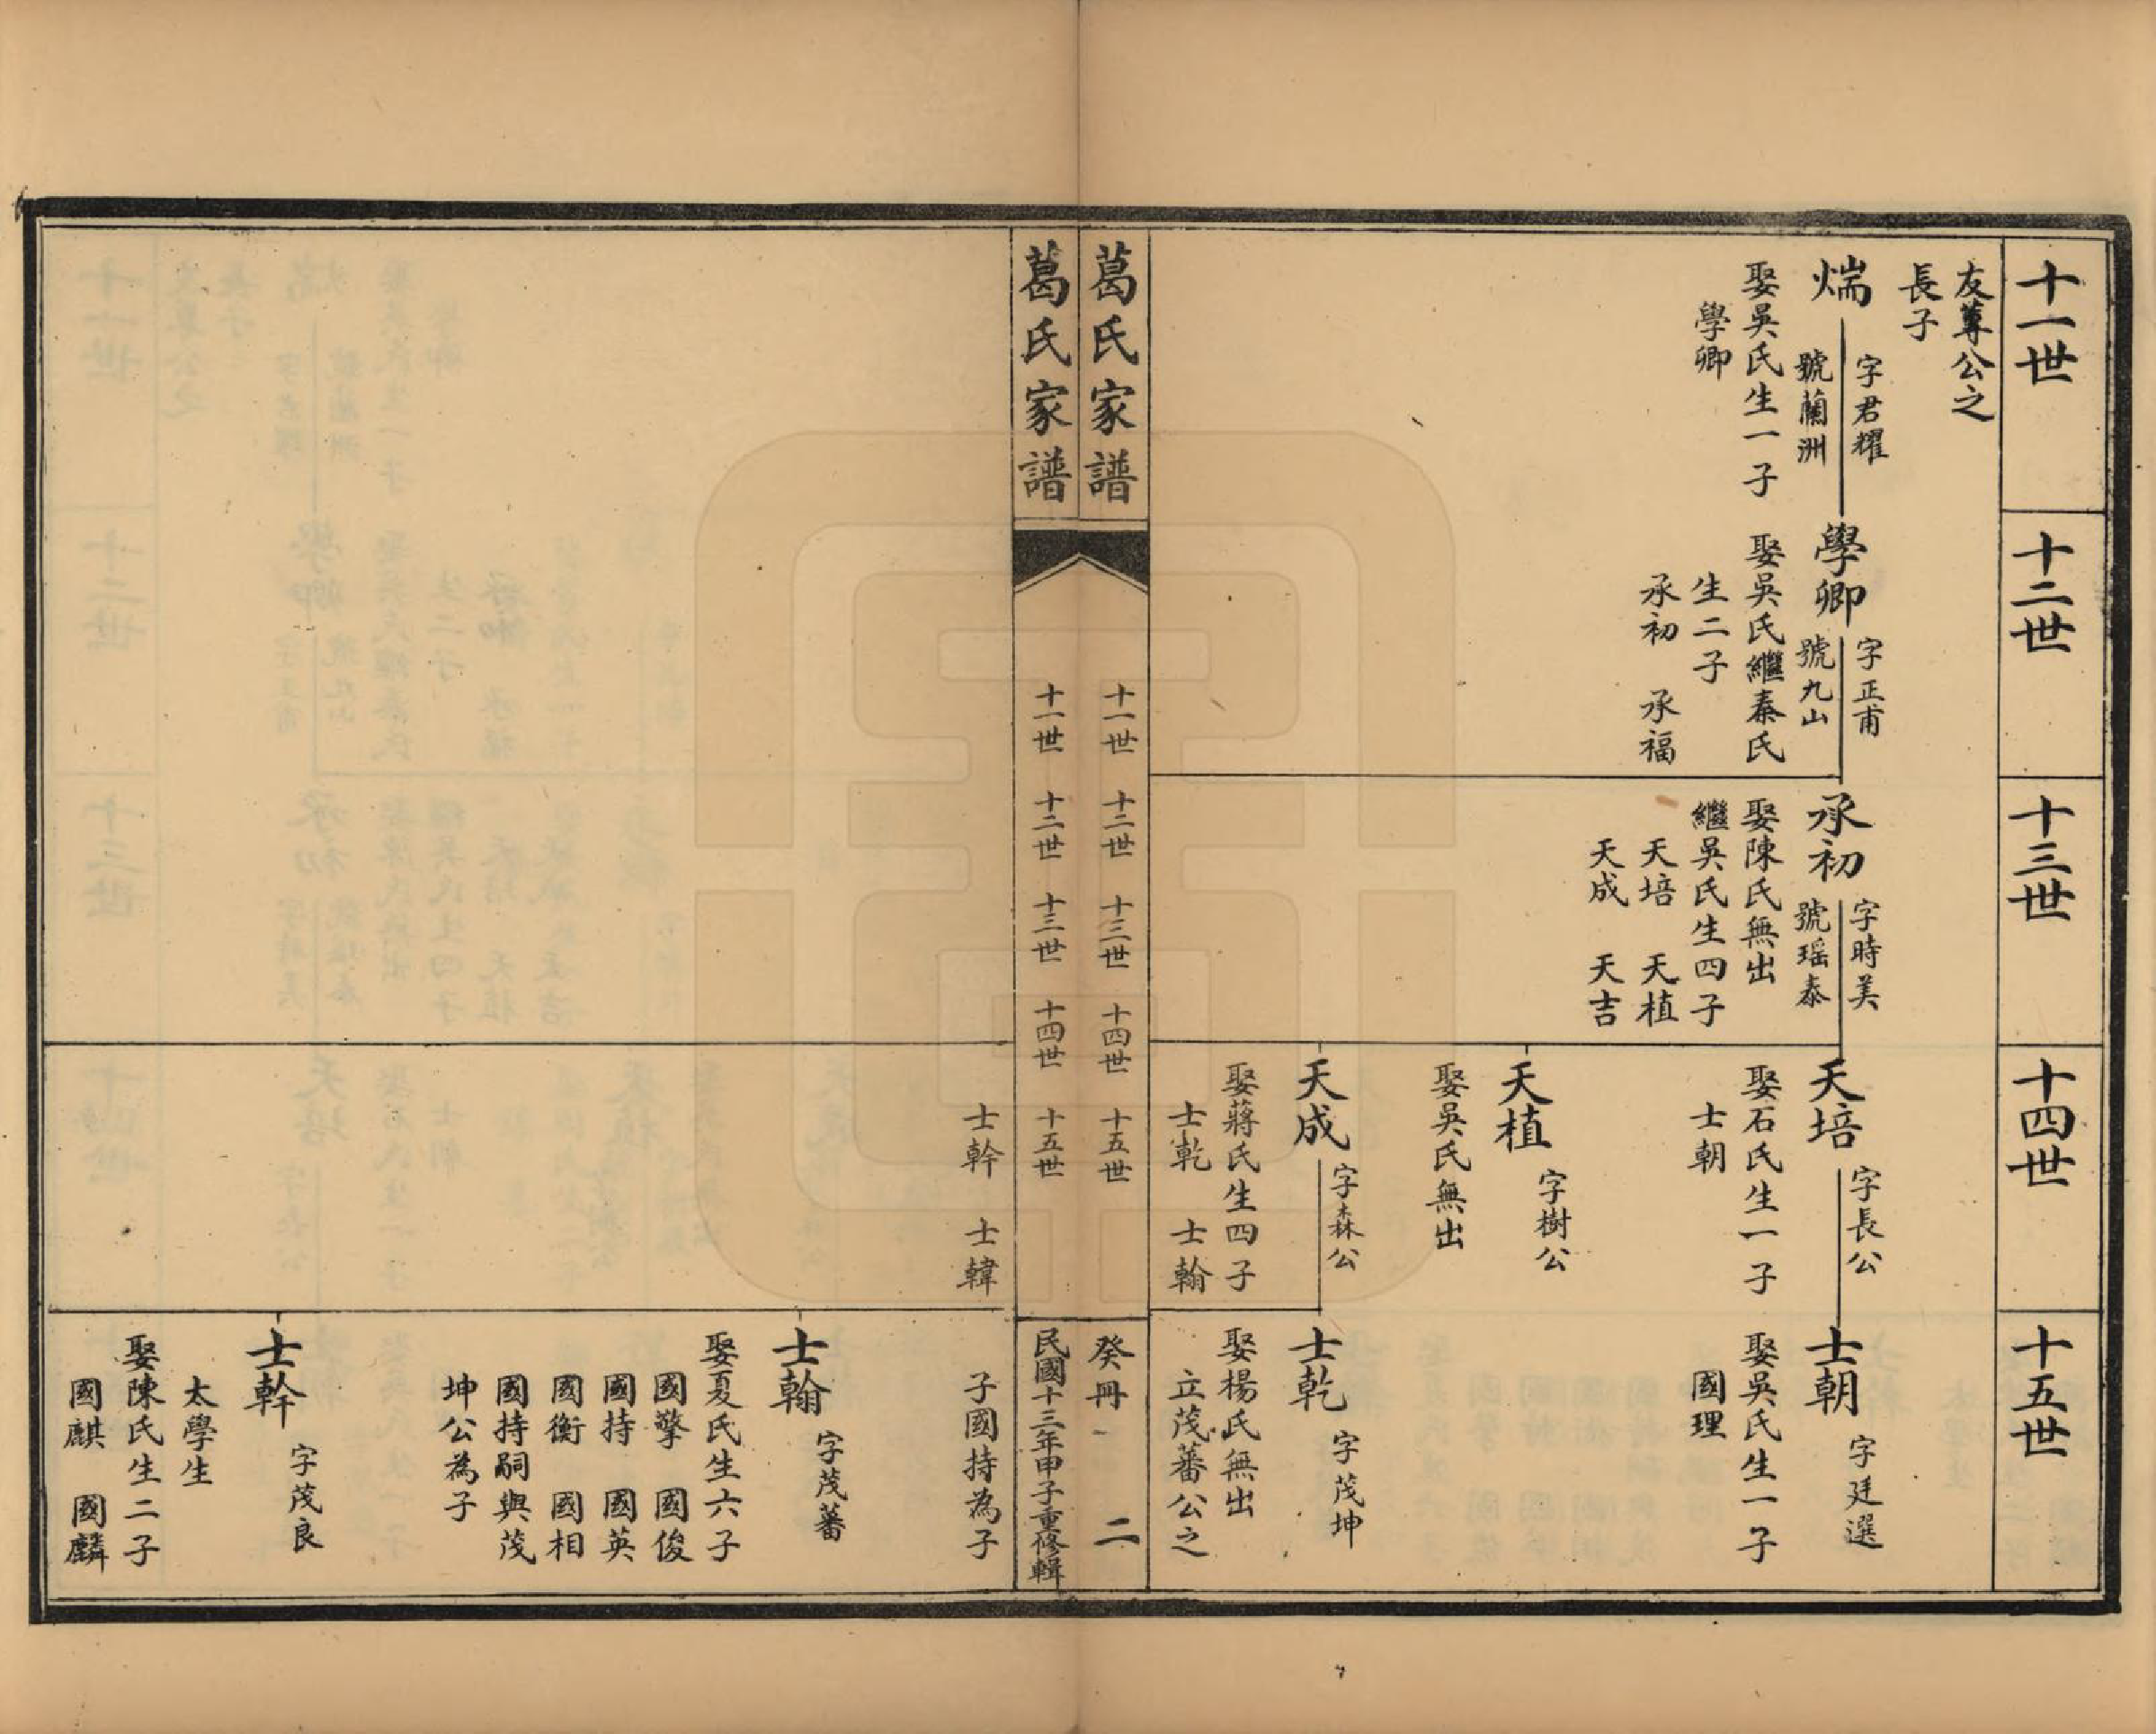 十一世
友尊公之
長子
煓
字君耀
號蘭洲
娶吳氏生一子
學卿
十二世
學卿
字正甫
號九山
娶吳氏繼秦氏
生二子
承初 承福
十三世
承初
字時美
號瑶泰
娶陳氏無出
繼吳氏生四子
天培 天植
天成 天吉
十四世
天培
字長公
娶石氏生一子
士朝
天植
字樹公
娶吳氏無出
天成
字森公
娶蔣氏生四子
士乾 士翰
十五世
士朝
字廷選
娶吳氏生一子
國理
士乾
字茂坤
娶楊氏無出
立茂蕃公之
葛氏家譜
十一世 十二世 十三世 十四世 十五世
癸冊 二
葛氏家譜
十一世 十二世 十三世 十四世 十五世
民國十三年甲子重修輯
士幹 士韓
子國持為子
士翰
字茂蕃
娶夏氏生六子
國擎 國俊
國持 國英
國衡 國相
國持嗣與茂
坤公為子
士幹
字茂良
太學生
娶陳氏生二子
國麒 國麟